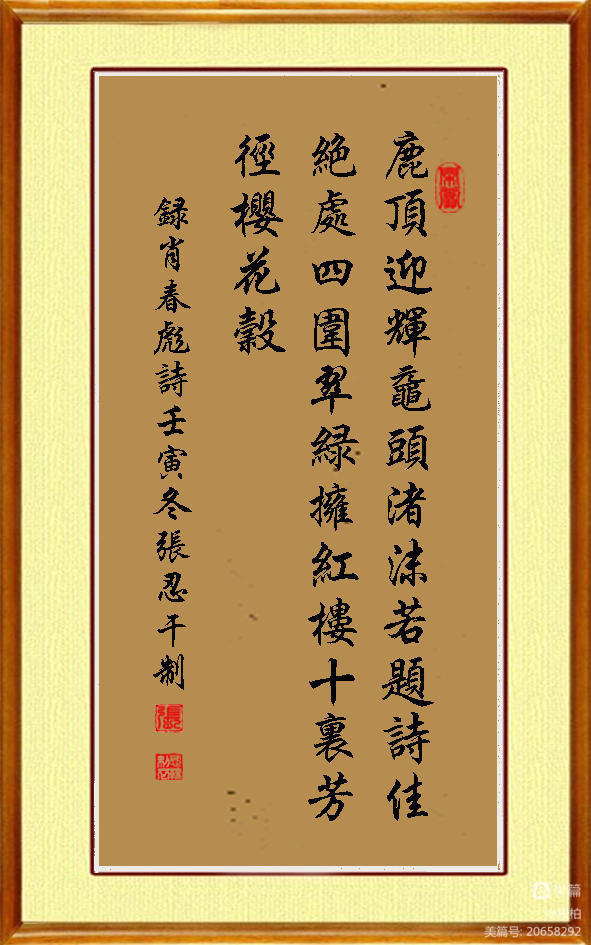 鹿頂迎輝黿頭渚沫若題詩佳
絕處四圍翠綠擁紅樓十裏芳
徑櫻花穀
録肖春彪詩壬寅冬張忍干制
張
美篇号: 20658292